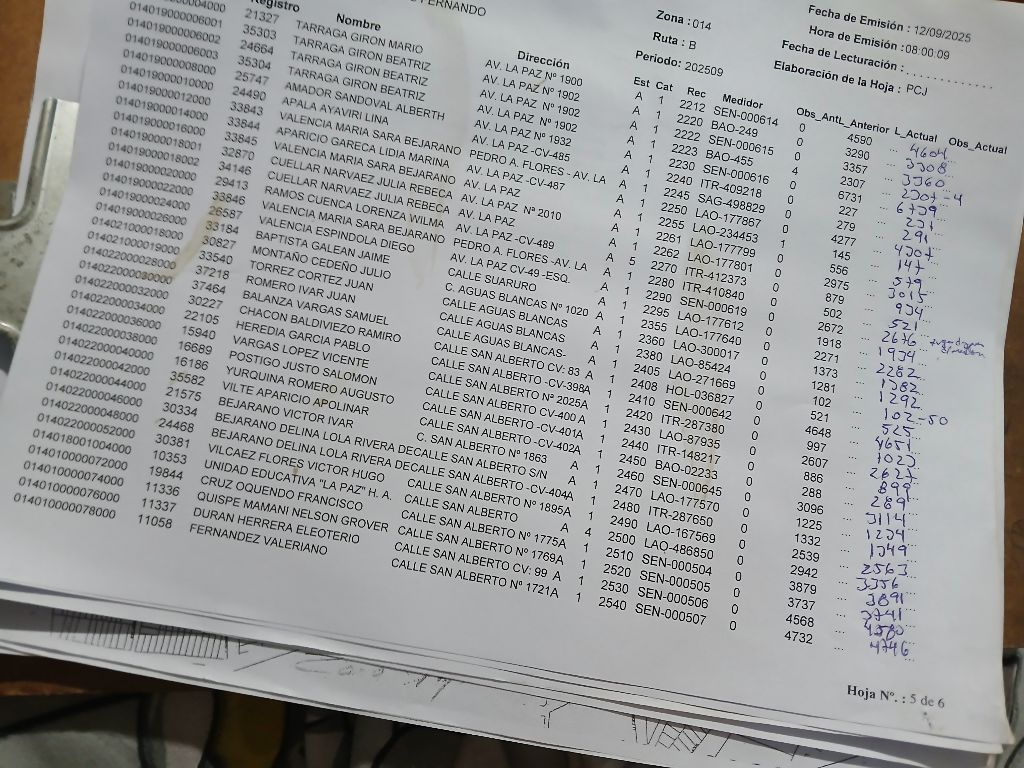 FERNANDO
Zona : 014
Ruta : B
Periodo: 202509
Fecha de Emisión : 12/09/2025
Hora de Emisión :08:00:09
Fecha de Lecturación : . . . . . . . . . . . .
Elaboración de la Hoja : PCJ
Registro Nombre Dirección Est Cat Rec Medidor Obs_Antl_Anterior L_Actual Obs_Actual
21327 TARRAGA GIRON MARIO
014019000006001 35303 TARRAGA GIRON BEATRIZ
014019000006002 24664 TARRAGA GIRON BEATRIZ
014019000006003 35304 TARRAGA GIRON BEATRIZ
014019000008000 25747 AMADOR SANDOVAL ALBERTH
014019000010000 24490 APALA AYAVIRI LINA
014019000012000 33843 VALENCIA MARIA SARA BEJARANO
014019000014000 33844 APARICIO GARECA LIDIA MARINA
014019000016000 33845 VALENCIA MARIA SARA BEJARANO
014019000018001 32870 CUELLAR NARVAEZ JULIA REBECA
014019000018002 34146 CUELLAR NARVAEZ JULIA REBECA
014019000020000 29413 RAMOS CUENCA LORENZA WILMA
014019000022000 33846 VALENCIA MARIA SARA BEJARANO
014019000024000 26587 VALENCIA ESPINDOLA DIEGO
014019000026000 33184 BAPTISTA GALEAN JAIME
014021000018000 30827 MONTAÑO CEDEÑO JULIO
014021000019000 33540 TORREZ CORTEZ JUAN
014022000028000 37218 ROMERO IVAR JUAN
014022000030000 37464 BALANZA VARGAS SAMUEL
014022000032000 30227 CHACON BALDIVIEZO RAMIRO
014022000034000 22105 HEREDIA GARCIA PABLO
014022000036000 15940 VARGAS LOPEZ VICENTE
014022000038000 16689 POSTIGO JUSTO SALOMON
014022000040000 16186 YURQUINA ROMERO AUGUSTO
014022000042000 35582 VILTE APARICIO APOLINAR
014022000044000 21575 BEJARANO VICTOR IVAR
014022000046000 30334 BEJARANO DELINA LOLA RIVERA DE
014022000048000 24468 BEJARANO DELINA LOLA RIVERA DE
014022000052000 30381 VILCAEZ FLORES VICTOR HUGO
014018001004000 10353 UNIDAD EDUCATIVA "LA PAZ" H. A.
014010000072000 19844 CRUZ OQUENDO FRANCISCO
014010000074000 11336 QUISPE MAMANI NELSON GROVER
014010000076000 11337 DURAN HERRERA ELEOTERIO
014010000078000 11058 FERNANDEZ VALERIANO
AV. LA PAZ Nº 1900
AV. LA PAZ Nº 1902
AV. LA PAZ Nº 1902
AV. LA PAZ Nº 1902
AV. LA PAZ Nº 1932
AV. LA PAZ -CV-485
PEDRO A. FLORES - AV. LA
AV. LA PAZ -CV-487
AV. LA PAZ
AV. LA PAZ Nº 2010
AV. LA PAZ -CV-489
PEDRO A. FLORES -AV. LA
AV. LA PAZ CV-49 -ESQ.
CALLE SUARURO
C. AGUAS BLANCAS Nº 1020
CALLE AGUAS BLANCAS
CALLE AGUAS BLANCAS-
CALLE SAN ALBERTO CV: 83
CALLE SAN ALBERTO Nº 2025A
CALLE SAN ALBERTO CV-398A
CALLE SAN ALBERTO -CV-400 A
CALLE SAN ALBERTO -CV-402A
CALLE SAN ALBERTO -CV-401A
C. SAN ALBERTO Nº 1863
CALLE SAN ALBERTO S/N
CALLE SAN ALBERTO -CV-404A
CALLE SAN ALBERTO Nº 1895A
CALLE SAN ALBERTO
CALLE SAN ALBERTO Nº 1775A
CALLE SAN ALBERTO Nº 1769A
CALLE SAN ALBERTO CV: 99
CALLE SAN ALBERTO Nº 1721A
2212 SEN-000614 0 4590 ... 4604
2220 BAO-249 3290 ... 3308
2222 SEN-000615 3357 ... 3360
2223 BAO-455 2307 ... 2307-4
2230 SEN-000616 6731 ... 6739
2240 ITR-409218 227 ... 231
2245 SAG-498829 279 ... 291
2250 LAO-177867 4277 ... 4307
2255 LAO-234453 145 ... 147
2261 LAO-177799 556 ... 579
2262 LAO-177801 2975 ... 3015
2270 ITR-412373 879 ... 934
2280 ITR-410840 502 ... 521
2290 SEN-000619 2672 ... 2676
2295 LAO-177612 1918 ... 1934
2355 LAO-177640 2271 ... 2282
2360 LAO-300017 1373 ... 1382
2380 LAO-85424 1281 ... 1292
2405 LAO-271669 102 ... 102-50
2408 HOL-036827 521 ... 525
2410 SEN-000642 4648 ... 4651
2420 ITR-287380 997 ... 1023
2430 LAO-87935 2607 ... 2627
2440 ITR-148217 886 ... 899
2450 BAO-02233 288 ... 289
2460 SEN-000645 3096 ... 3114
2470 LAO-177570 1225 ... 1234
2480 ITR-287650 1332 ... 1349
2490 LAO-167569 2539 ... 2563
2500 LAO-486850 2942 ... 3356
2510 SEN-000504 3879 ... 3891
2520 SEN-000505 3737 ... 3741
2530 SEN-000506 4568 ... 4580
2540 SEN-000507 0 4732 ... 4746
Hoja Nº. : 5 de 6